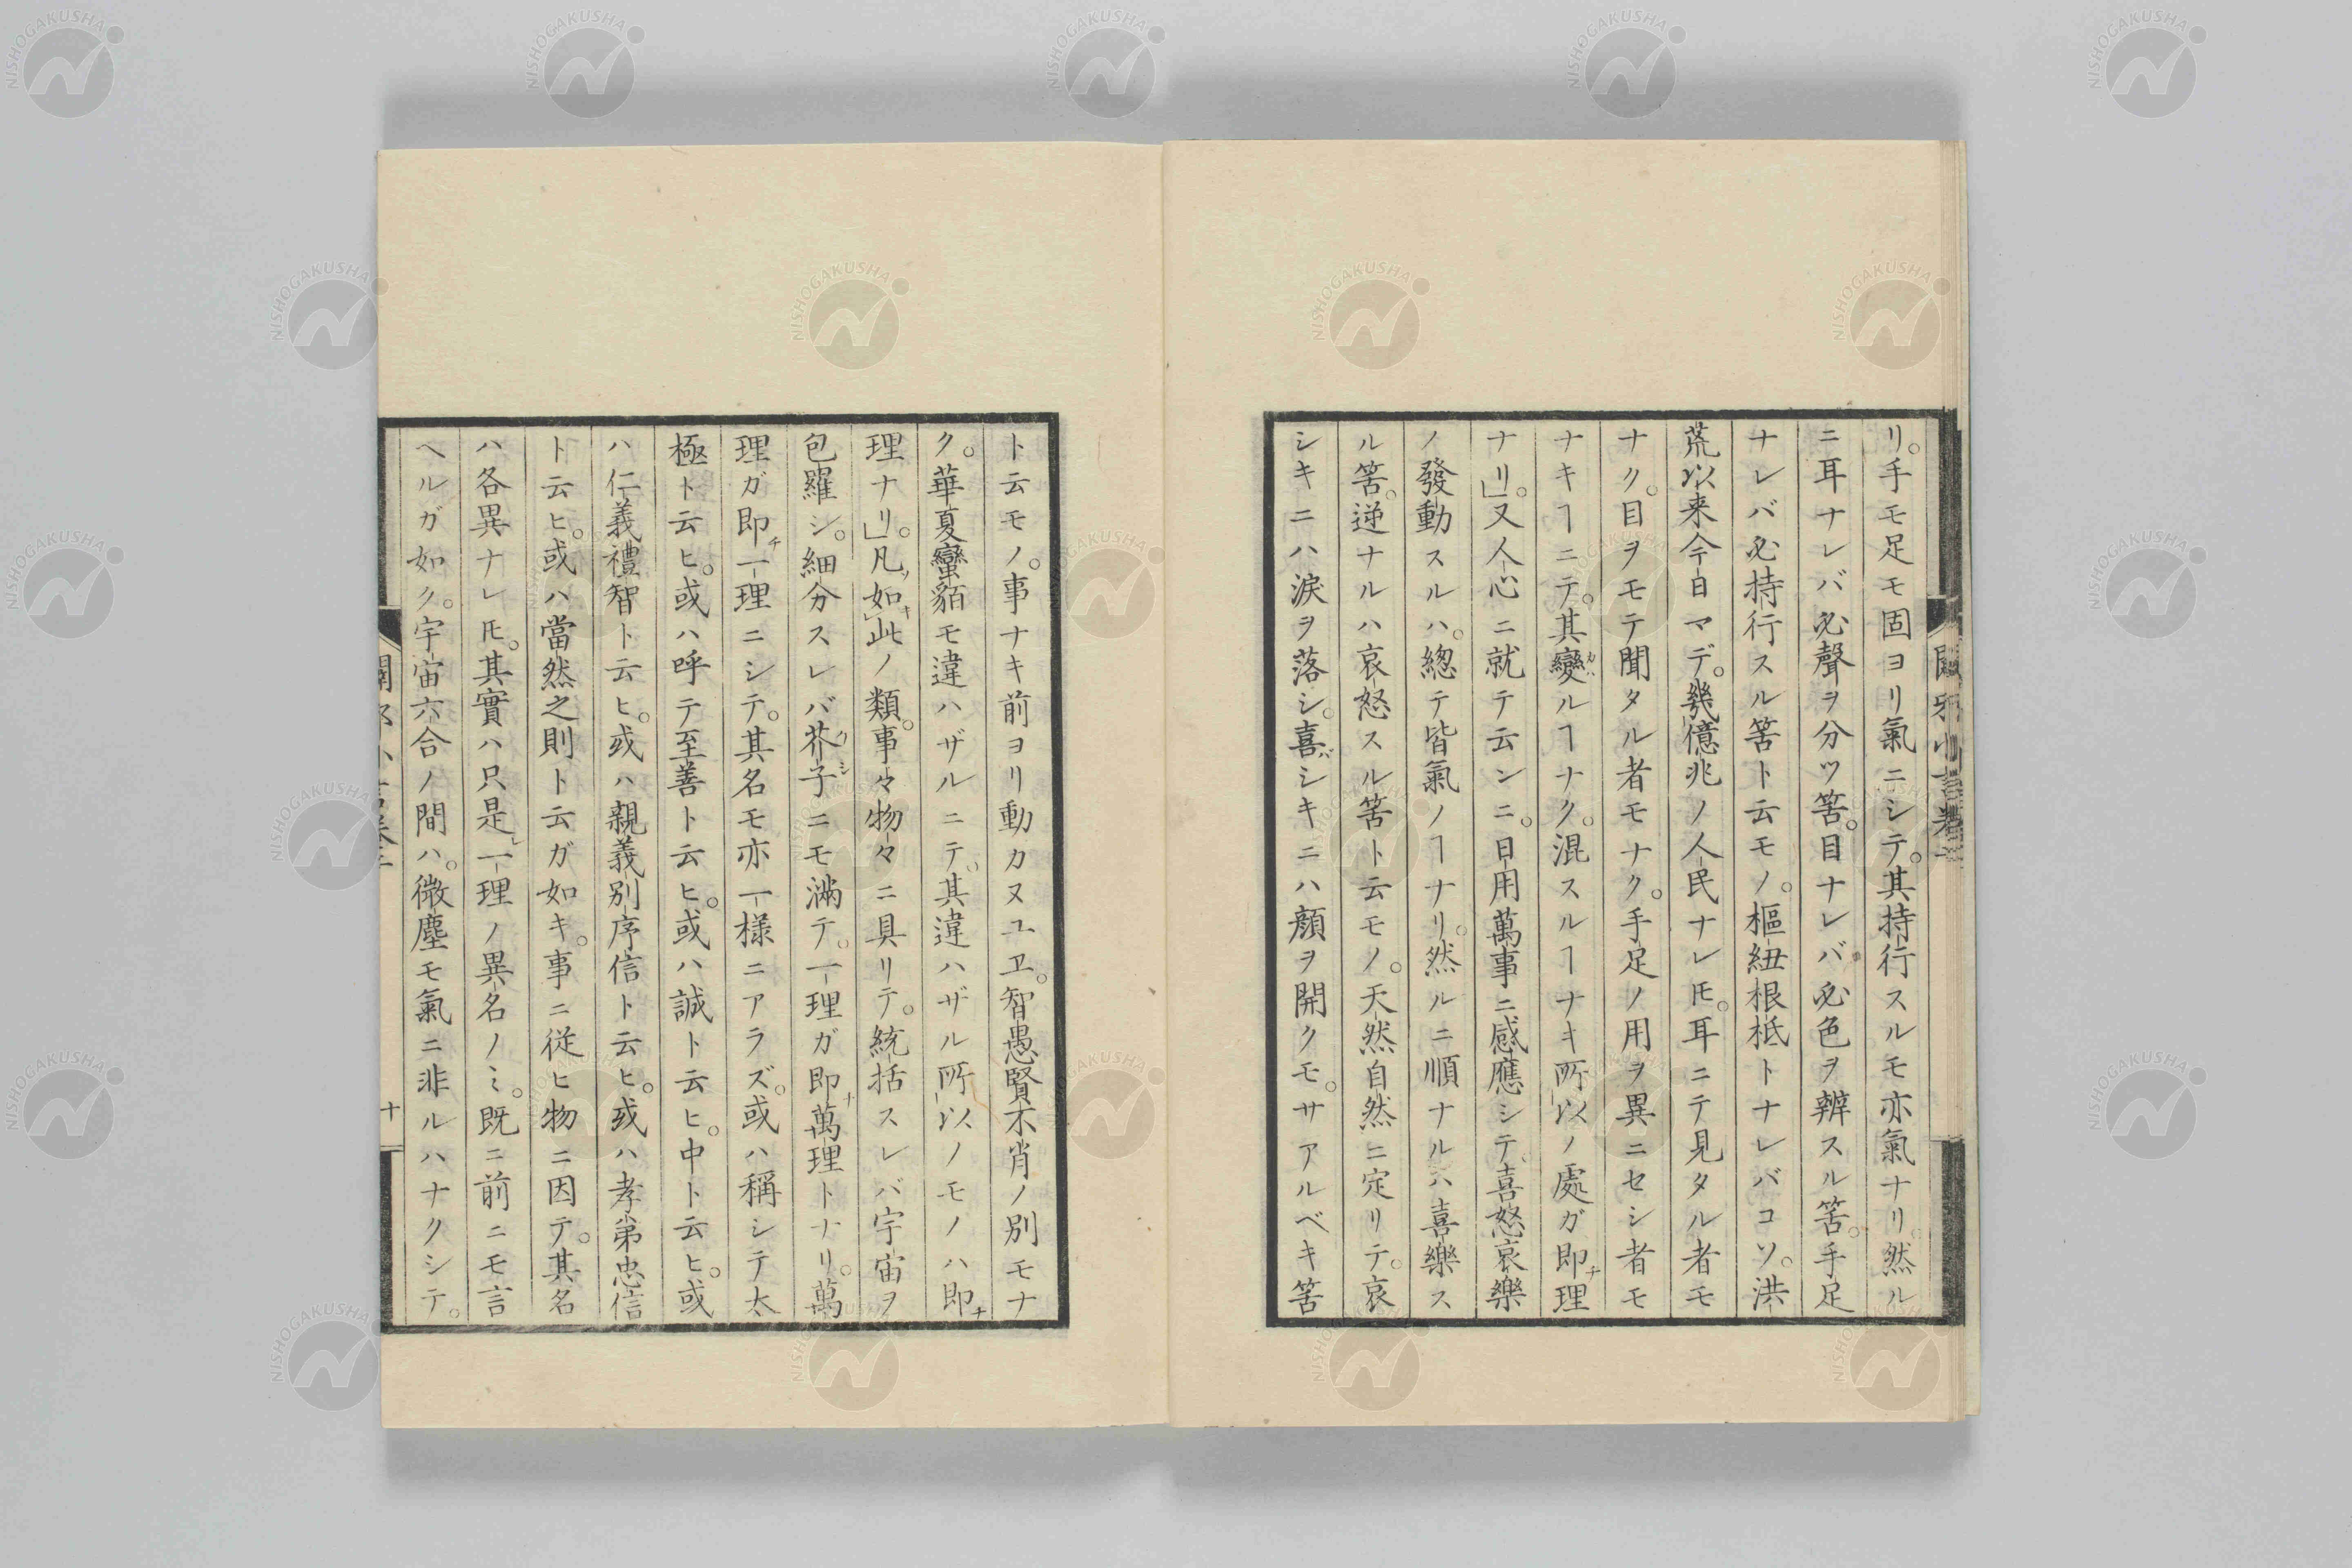 リ。手モ足モ固ヨリ氣ニシテ。其持行スルモ亦氣ナリ。然ル
ニ耳ナレバ必聲ヲ分ツ筈。目ナレバ必色ヲ辨スル筈。手足
ナレバ必持行スル筈ト云モノ。樞紐根柢トナレバコソ。洪
荒以来今日マデ。幾億兆ノ人民ナレ𪜈。耳ニテ見タル者モ
ナク。目ヲモテ聞タル者モナク。手足ノ用ヲ異ニセシ者モ
ナキヿニテ。其變カハルヿナク。混スルヿナキ所以ノ處ガ即チ理
ナリ」。又人心ニ就テ云ンニ。日用萬事ニ感應シテ、喜怒哀樂
ノ發動スルハ。總テ皆氣ノヿナリ。然ルニ順ナルハ喜樂ス
ル筈。逆ナルハ哀怒スル筈ト云モノ。天然自然ニ定リテ。哀
シキニハ淚ヲ落シ。喜バシキニハ顔ヲ開クモ。サアルベキ筈
ト云モノ。事ナキ前ヨリ動カヌユヱ。智愚賢不肖ノ別モナ
ク。華夏蠻貊モ違ハザルニテ、其違ハザル所以ノモノハ即チ
理ナリ」。凡ソ如キ此ノ類。事々物々ニ具リテ。統括スレバ宇宙ヲ
包羅シ。細分スレバ芥子ケシニモ滿テ。一理ガ即チ萬理トナリ。萬
理ガ即チ一理ニシテ。其名モ亦一様ニアラズ。或ハ稱シテ太
極ト云ヒ。或ハ呼テ至善ト云ヒ。或ハ誠ト云ヒ。中ト云ヒ。或
ハ仁義禮智ト云ヒ。或ハ親義別序信ト云ヒ。或ハ孝弟忠信
ト云ヒ。或ハ當然之則ト云ガ如キ。事ニ従ヒ物ニ因テ。其名
ハ各異ナレ𪜈。其實ハ只是レ一理ノ異名ノミ。既ニ前ニモ言
ヘルガ如ク。宇宙六合ノ間ハ。微塵モ氣ニ非ルハナクシテ。
十
NISHOGAKUSHA